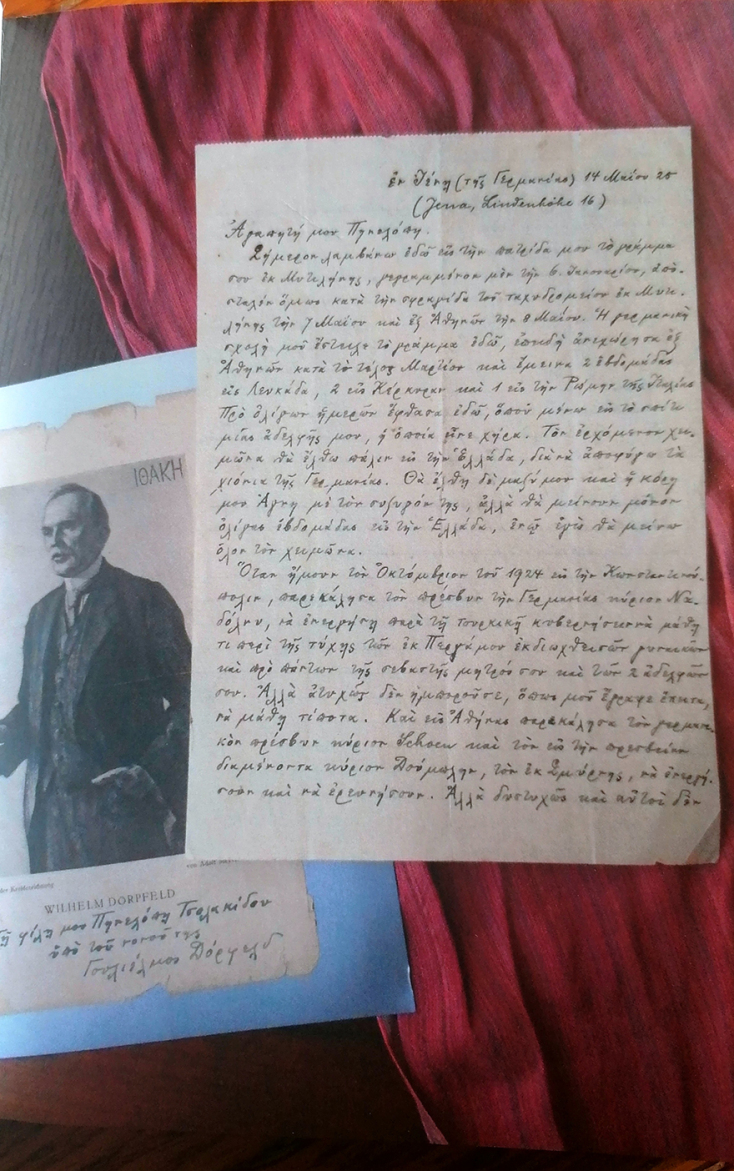 ἐν Ἰένῃ (τῆς Γερμανίας) 14 Μαΐου 25
(Jena, Lindenhöhe 16)
Ἀγαπητή μου Πηνελόπη.
Σήμερον λαμβάνω ἐδῶ εἰς τὴν πατρίδα μου τὸ γράμμα
σου ἐκ Μυτιλήνης, γεγραμμένον μὲν τὴν 6. Ἰανουαρίου, ἀπο-
σταλὲν ὅμως κατὰ τὴν σφραγίδα τοῦ ταχυδρομείου ἐκ Μυτι-
λήνης τὴν 7 Μαΐου καὶ ἐξ Ἀθηνῶν τὴν 8 Μαΐου. Ἡ γερμανικὴ
σχολὴ μοῦ ἔστειλε τὸ γράμμα ἐδῶ, ἐπειδὴ ἀνεχώρησα ἐξ
Ἀθηνῶν κατὰ τὸ τέλος Μαρτίου καὶ ἔμεινα 2 ἑβδομάδας
εἰς Λευκάδα, 2 εἰς Κέρκυραν καὶ 1 εἰς τὴν Ρώμην τῆς Ἰταλίας
Πρὸ ὀλίγων ἡμερῶν ἔφθασα ἐδῶ, ὅπου μένω εἰς τὸ σπίτι
μίας ἀδελφῆς μου, ἡ ὁποία εἶνε χήρα. Τὸν ἐρχόμενον χει-
μῶνα θὰ ἔλθω πάλιν εἰς τὴν Ἑλλάδα, διὰ νὰ ἀποφύγω τὰ
χιόνια τῆς Γερμανίας. Θὰ ἔλθῃ δὲ μαζύ μου καὶ ἡ κόρη
μου Ἄγνη μὲ τὸν συζυγόν της, ἀλλὰ θὰ μείνουν μόνον
ὀλίγας ἑβδομάδας εἰς τὴν Ἑλλάδα, ἐνῷ ἐγὼ θὰ μείνω
ὅλον τὸν χειμῶνα.
Ὅταν ἤμουν τὸν Ὀκτώμβριον τοῦ 1924 εἰς τὴν Κωνσταντινού-
πολιν, παρεκάλησα τὸν πρέσβυν τὴν Γερμανίας κύριον Να-
δόλνυ, νὰ ἐνεργήσῃ παρὰ τῇ τουρκικῇ κυβερνήσει νὰ μάθῃ
τι περὶ τῆς τύχης τῶν ἐκ Περγάμου ἐκδιωχθεισῶν γυναικῶν
καὶ πρὸ πάντων τῆς σεβαστῆς μητρός σου καὶ τῶν 2 ἀδελφῶν
σου. Ἀλλὰ ἀτυχῶς δὲν ἠμποροῦσε, ὅπως μοῦ ἔγραψε ἔπειτα,
νὰ μάθῃ τίποτα. Καὶ εἰς Ἀθήνας παρεκάλησα τὸν γερμανι-
κὸν πρέσβυν κύριον Schoen καὶ τὸν εἰς τὴν πρεσβείαν
διαμένοντα κύριον Δούμωλην, τὸν ἐκ Σμύρνης, νὰ ἐνεργή-
σουν καὶ νὰ ἐρευνήσουν. Ἀλλὰ δυστυχῶς καὶ αὐτοὶ δὲν
ΙΘΑΚΗ
WILHELM DÖRPFELD
Τῇ φίλῃ μου Πηνελόπῃ Τσαλακίδου
ὑπὸ τοῦ νονοῦ της
Γουλιέλμου Δόρφελδ